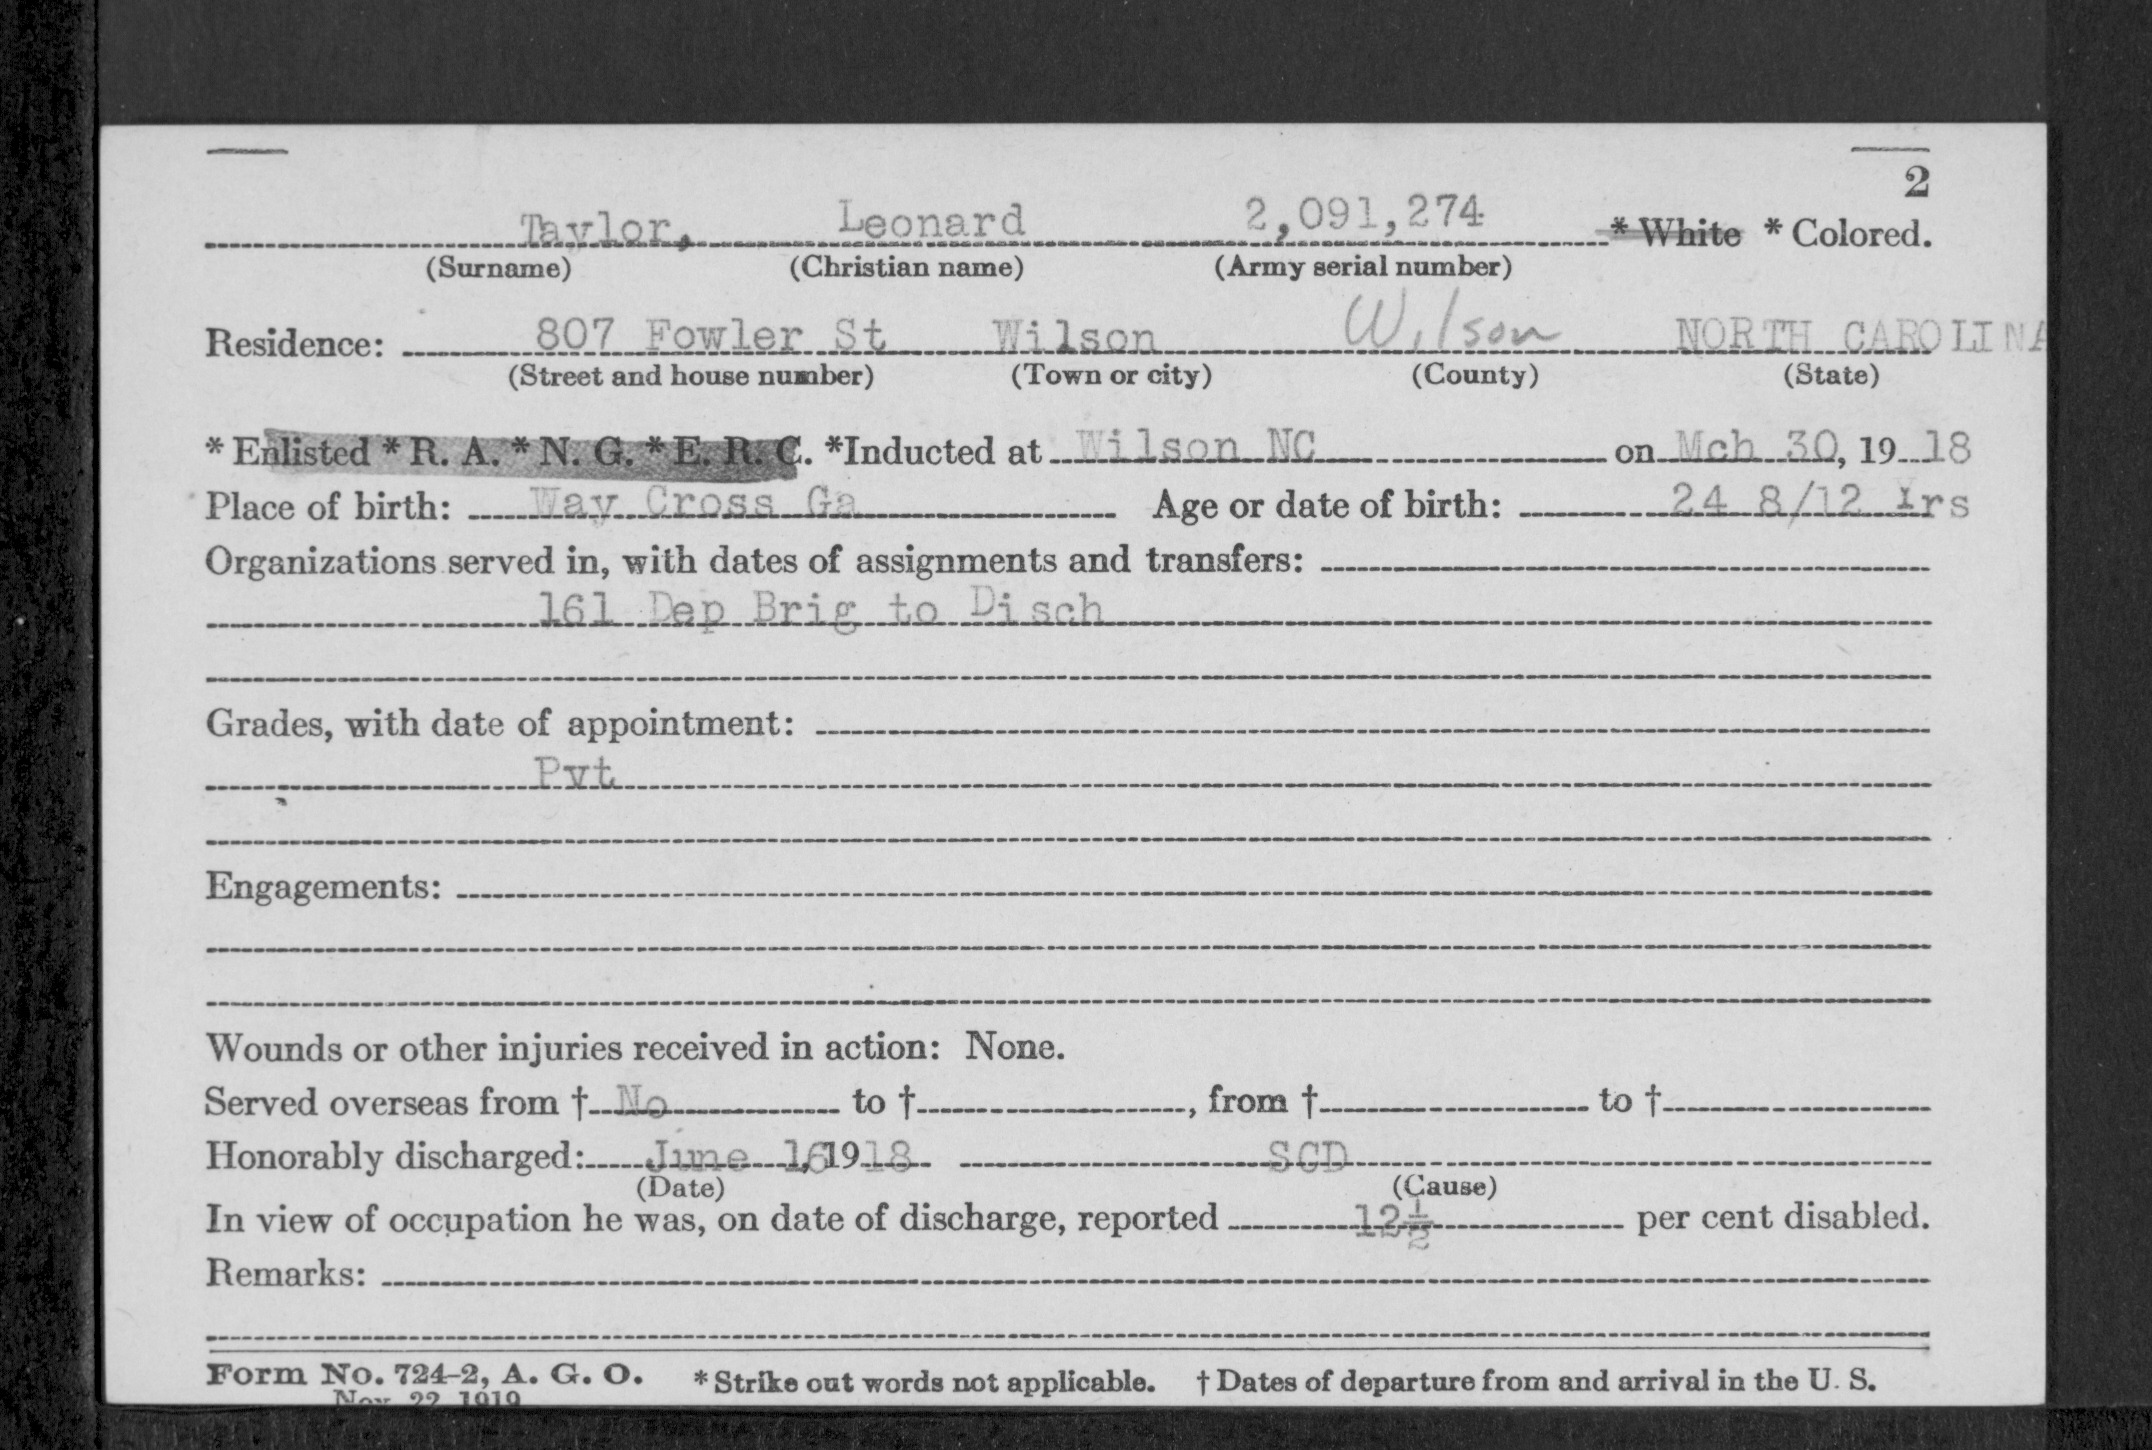 2
Taylor, Leonard 2,091,274 * White * Colored.
(Surname) (Christian name) (Army serial number)
Residence: 807 Fowler St Wilson Wilson NORTH CAROLINA
(Street and house number) (Town or city) (County) (State)
* Enlisted * R. A. * N. G. * E. R. C. *Inducted at Wilson NC on Mch 30, 19 18
Place of birth: Way Cross Ga Age or date of birth: 24 8/12 Yrs
Organizations served in, with dates of assignments and transfers:
161 Dep Brig to Disch
Grades, with date of appointment:
Pvt
Engagements:
Wounds or other injuries received in action: None.
Served overseas from † No to † , from † to †
Honorably discharged: June 16, 1918 SCD
(Date) (Cause)
In view of occupation he was, on date of discharge, reported 12½ per cent disabled.
Remarks:
Form No. 724-2, A. G. O. * Strike out words not applicable. † Dates of departure from and arrival in the U. S.
Nov. 22, 1919